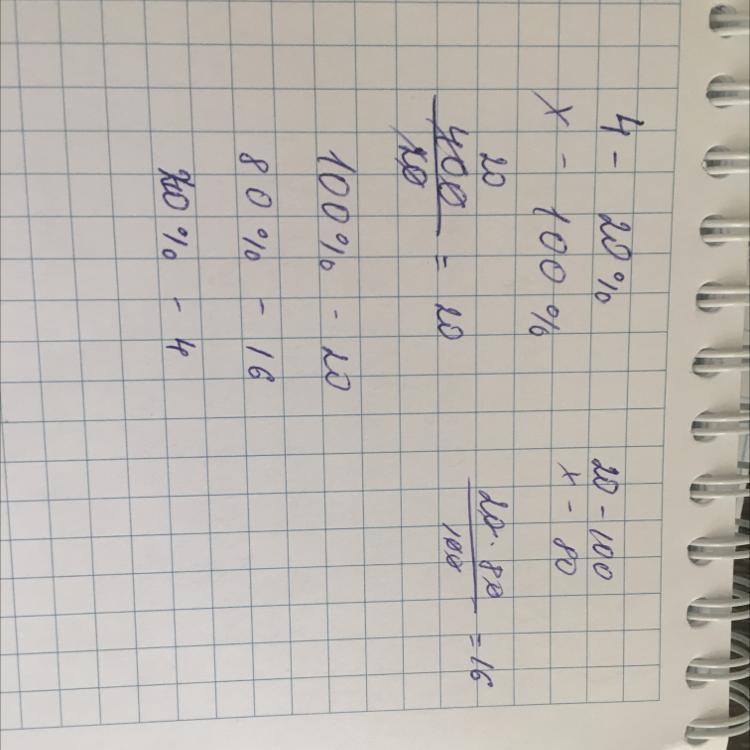 4 - 20%
x - 100%
20
400
20
= 20
100% - 20
80% - 16
20% - 4
20 - 100
x - 80
20 · 80
100
= 16